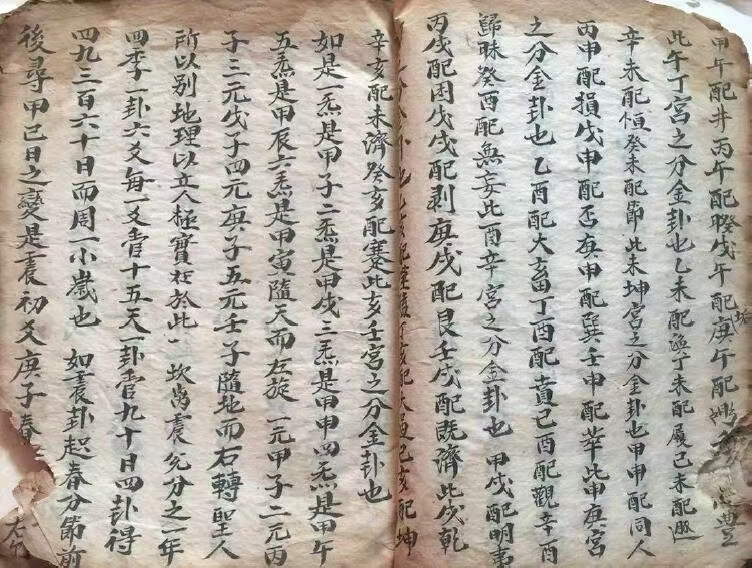 甲午配井丙午配暌戊午配庚午配
此午丁宮之分金卦也乙未配丁未配履己未配遯
辛未配恒癸未配節此未坤宮之分金卦也甲申配同人
丙申配損戊申配否庚申配巽壬申配萃此申庚宮
之分金卦也乙酉配大畜丁酉配賁己酉配觀辛酉
歸昧癸酉配無妄此酉辛宮之分金卦也甲戌配明夷
丙戌配困戊戌配剥庚戌配艮壬戌配既濟此戌乾
己亥配坤
辛亥配未濟癸亥配蹇此亥壬宮之分金卦也
如是一炁是甲子二炁是甲戌三炁是甲申四炁是甲午
五炁是甲辰六炁是甲寅隨天而左旋一元甲子二元丙
子三元戊子四元庚子五元壬子隨地而右轉聖人
所以别地理以立人極實在於此坎离震兑分之一年
四季一卦六爻每一爻管十五天一卦管九十日四卦得
四九三百六十日而周一小歲也如震卦起春分節前
後尋甲己日之變是震初爻庚子春